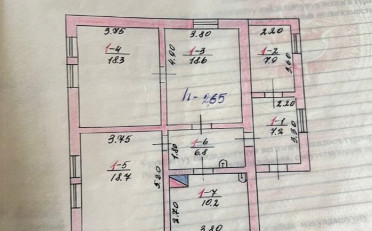 3.75
1-4
18.3
3.80
1-3
18.6
4.90
2.20
1-2
7.0
h-2.65
2.20
1-1
7.2
3.30
3.75
1-5
18.7
1-6
6.8
1.80
1-7
10.2
2.70
3.80